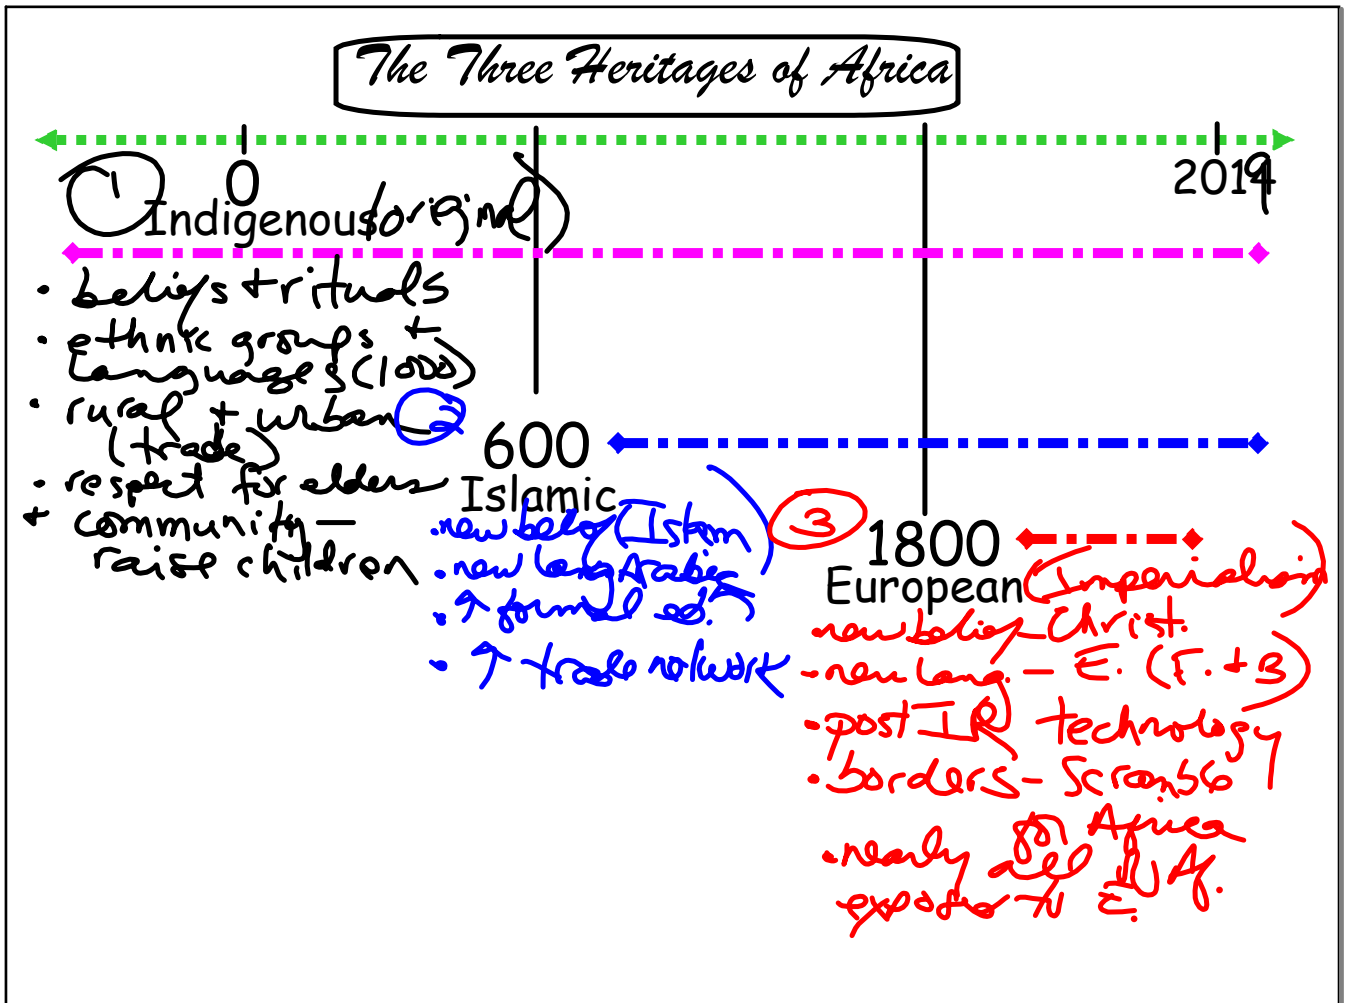 The Three Heritages of Africa
0
2019
1
Indigenous (original)
• beliefs + rituals
• ethnic groups +
Languages (1000)
• rural + urban
(trade)
• respect for elders
+ community —
raise children
2
600
Islamic
• new belief (Islam)
• new lang Arabic
• ↑ formal ed.
• ↑ trade network
3
1800
European (Imperialism)
• new belief – Christ.
• new lang. – E. (F. + B)
• post IR technology
• borders – Scramble
for Africa
• nearly all Af.
E.